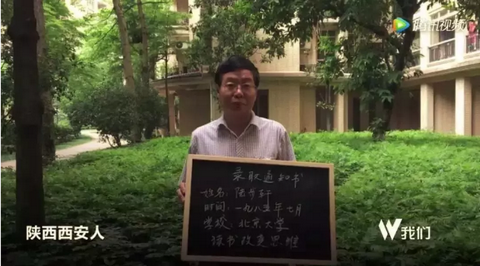 腾讯视频
录取通知书
姓名：陆步轩
时间：一九八五年七月
学校：北京大学
读书改变思维
陕西西安人
我们